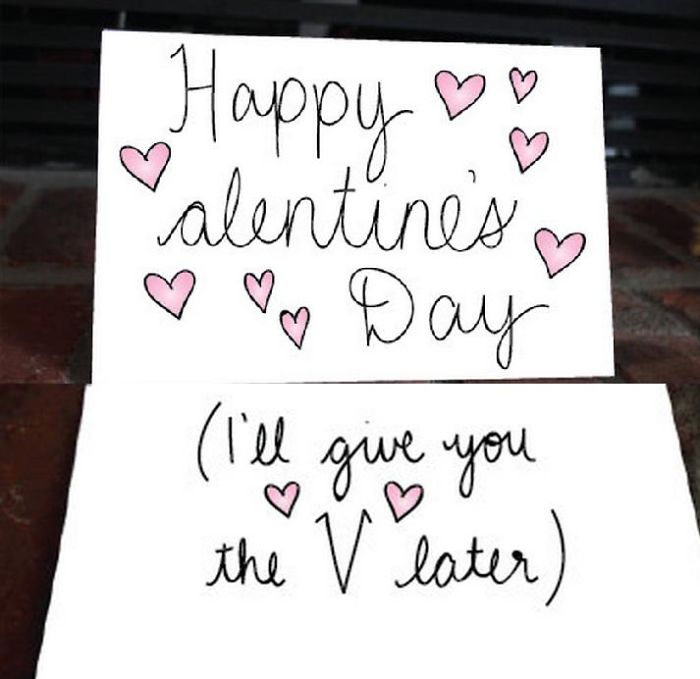 Happy
alentine's
Day
(I'll give you
the V later)